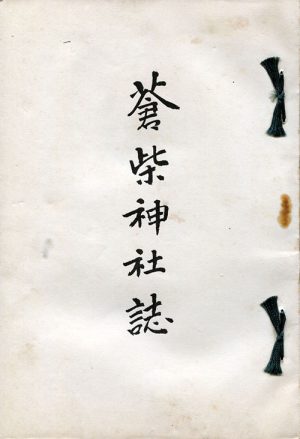 蒼柴神社誌